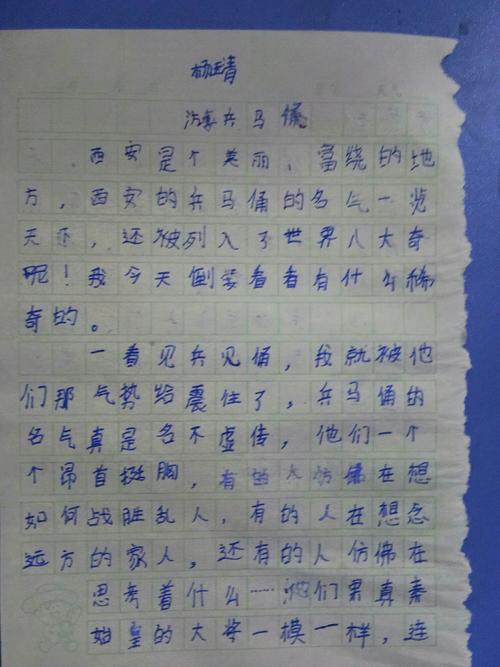 杨
游秦兵马俑
西安是个美丽、富绕的地
方，西安的兵马俑的名气一览
天下，还被列入了世界八大奇
呢！我今天倒要看看有什么稀
奇的。
一看见兵见俑，我就被他
们那气势给震住了，兵马俑的
名气真是名不虚传，他们一个
个昂首挺胸，有的人仿佛在想
如何战胜乱人，有的人在想念
远方的家人，还有的人仿佛在
思考着什么……他们累真秦
始皇的大将一模一样，连